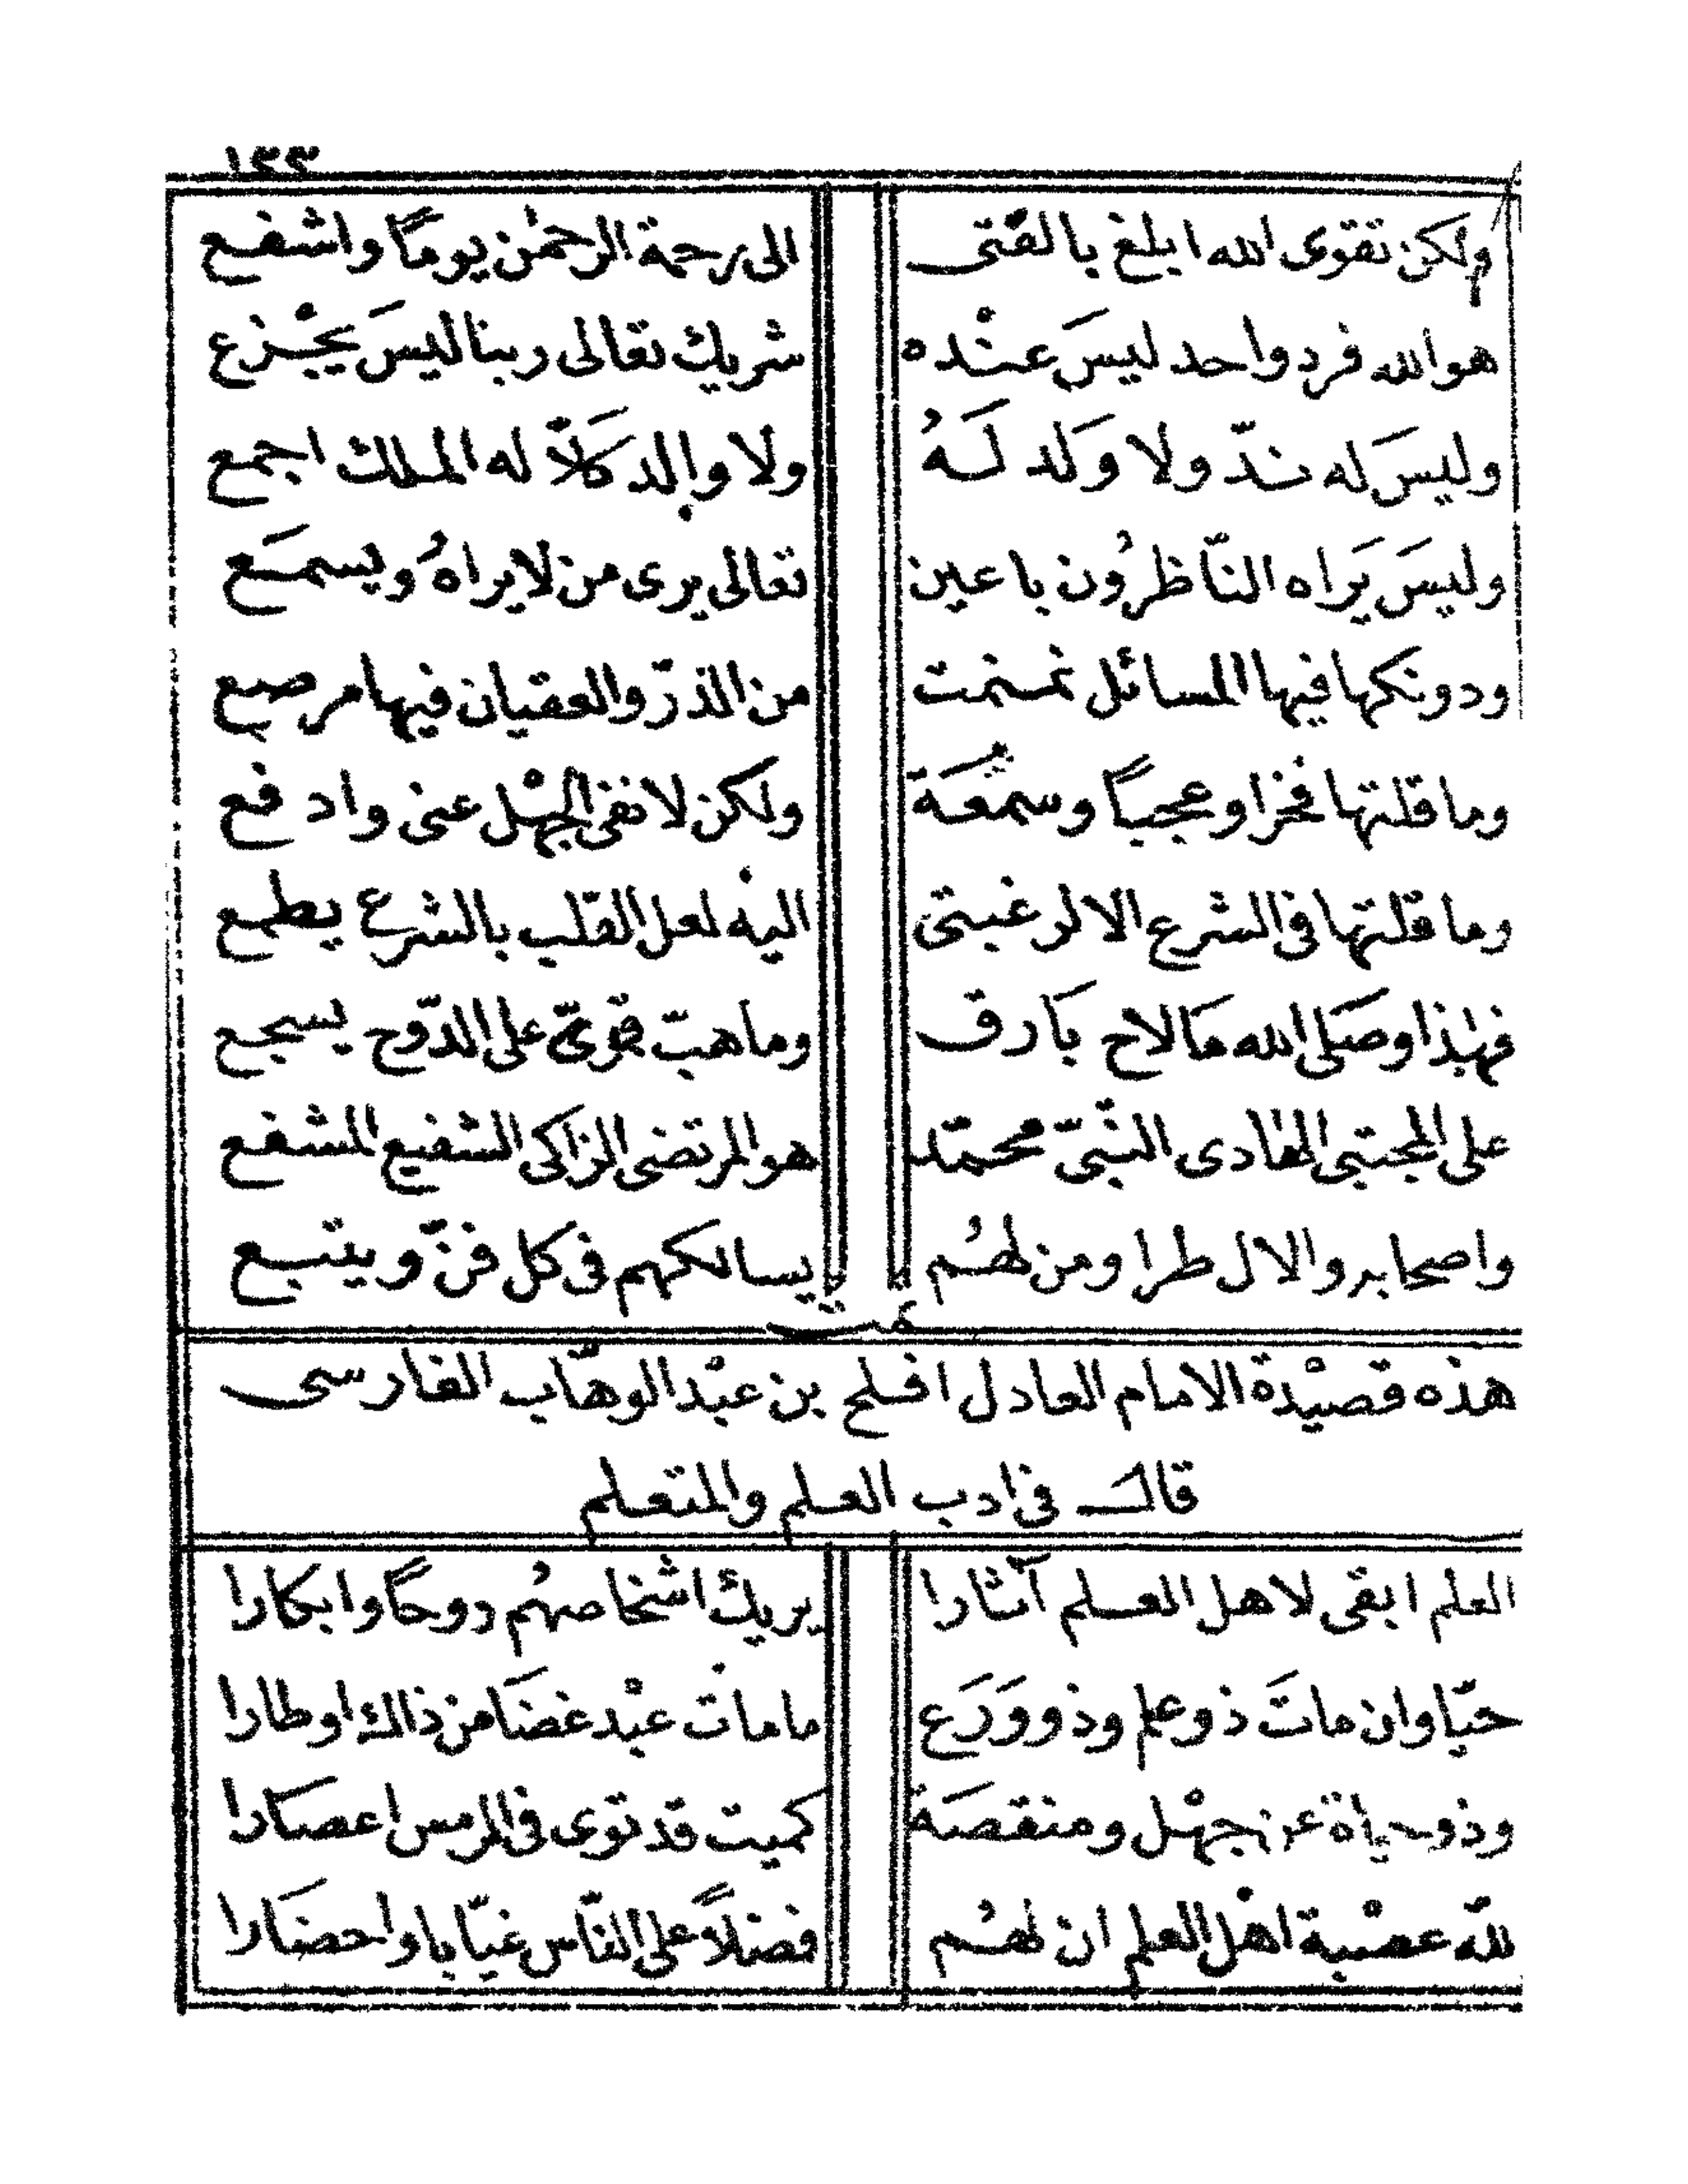 ١٣٣
ولكن تقوى الله ابلغ بالفتى الى رحمة الرحمٰن يوماً واشفع
هو الله فرد واحد ليسَ عنْده شريك تعالى ربنا ليسَ يجْزع
وليسَ له ندّ ولا وَلد لَهُ ولا والد كلاَّ له الملك اجمع
وليسَ يَراه النّاظرُون باعين تعالى يرى من لا يراهُ ويسمَع
ودونكها فيها المسائل نمنمت من الذرّ والعقيان فيها مرصع
وما قلتها فخرا وعجباً وسمْعَة ولكن لانفى الجهْل عنى وادفع
وما قلتها فى الشرع الا لرغبتى اليْه لعل القلب بالشرع يطمع
فهٰذا وصَلى الله مَا لاح بَارق وما هبّ قمرىّ على الدّوح يسجع
على المجتبى الهادى النّبىّ محمّد هو المرتضى الزاكى الشفيع المشفع
واصحابه والال طرا ومن لهُم يسالكهم فى كل فنّ ويتبع
تمت
هذه قصيْدة الامام العادل افلح بن عبْد الوهّاب الفارسى
قال فى ادب العلم والمتعلم
العلم ابقى لاهل العلم آثارا يريك اشخاصهُم دوحاً وابكارا
حيّا وان ماتَ ذو علم وذو وَرَع ما مات عبْد غضَا من ذالك اوطارا
وذو حياة عن جهْل ومنقصَة كميت قد توى فى الرمس اعصَارا
للّه عصْبة اهل العلم ان لهُم فضلاً على النّاس غيّابا واحضَارا